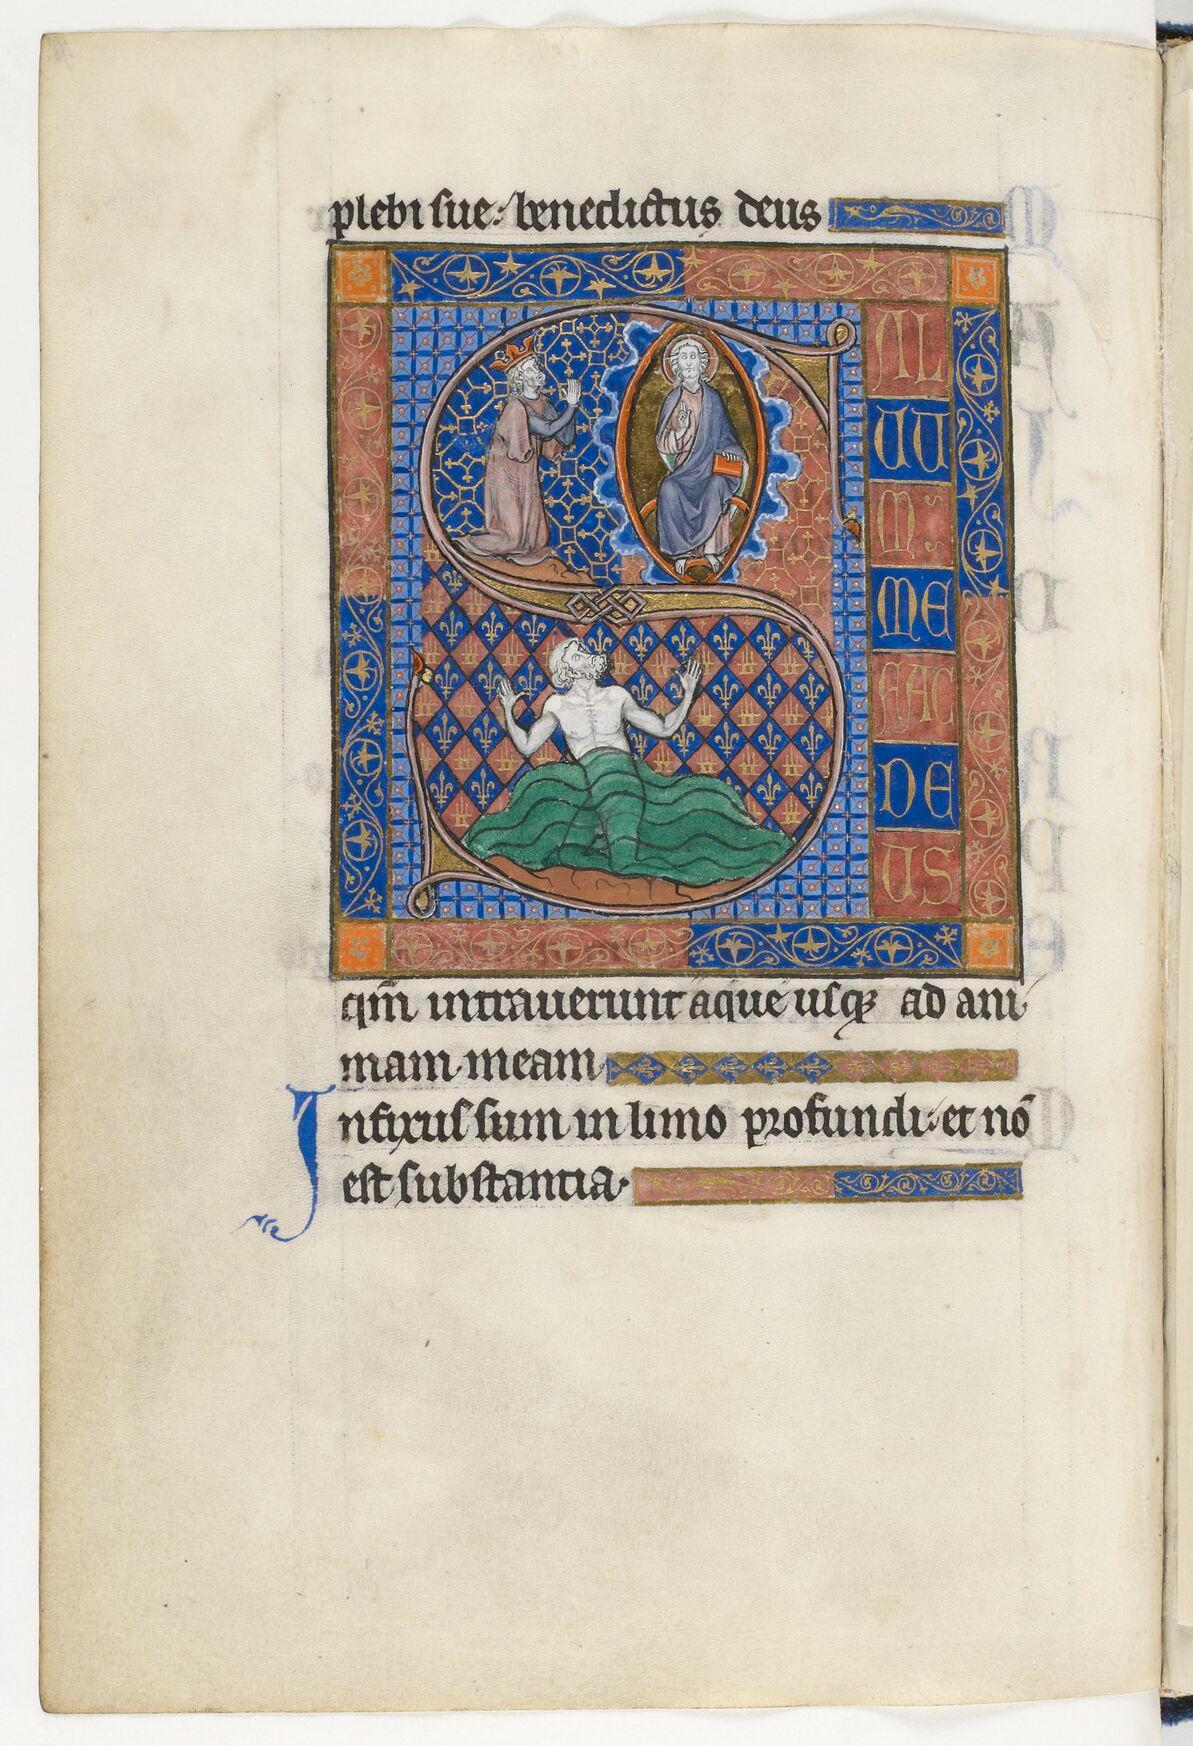 plebi sue : benedictus deus
S
AL
UU
M
ME
FAC
DE
US
qm̄ intrauerunt aque usqꝫ ad ani
mam meam.
Infixus sum in limo profundi : et nō
est substantia.